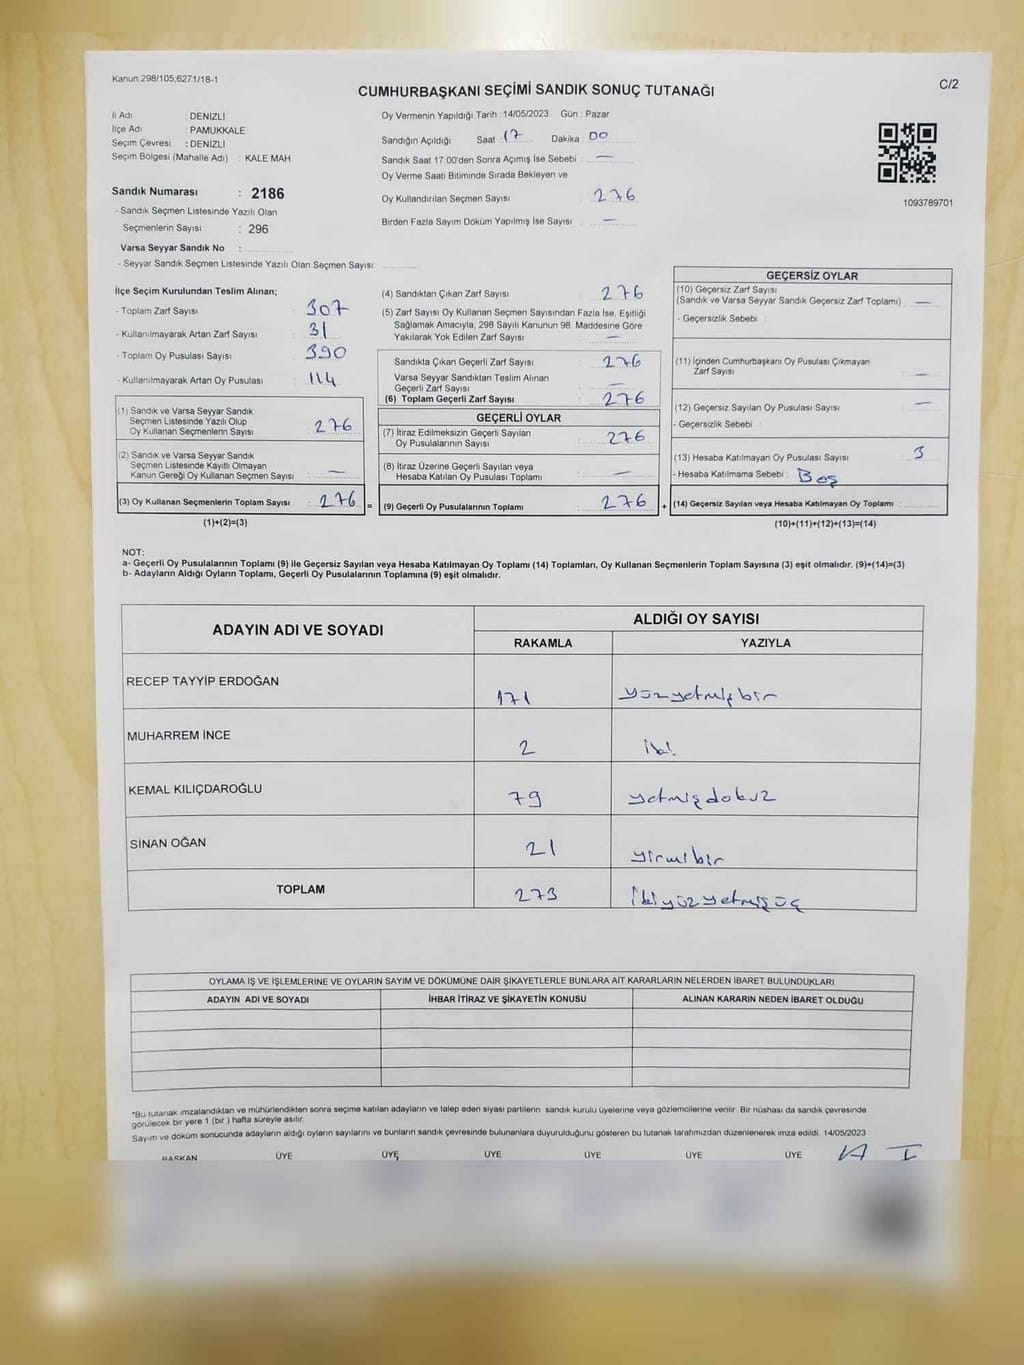 Kanun 298/105,6271/18-1
C/2
CUMHURBAŞKANI SEÇİMİ SANDIK SONUÇ TUTANAĞI
İl Adı : DENİZLİ
İlçe Adı : PAMUKKALE
Seçim Çevresi : DENİZLİ
Seçim Bölgesi (Mahalle Adı) : KALE MAH.
Sandık Numarası : 2186
- Sandık Seçmen Listesinde Yazılı Olan
Seçmenlerin Sayısı : 296
Varsa Seyyar Sandık No :
- Seyyar Sandık Seçmen Listesinde Yazılı Olan Seçmen Sayısı:
Oy Vermenin Yapıldığı Tarih : 14/05/2023 Gün : Pazar
Sandığın Açıldığı Saat 17 Dakika 00
Sandık Saat 17:00'den Sonra Açımış İse Sebebi : —
Oy Verme Saati Bitiminde Sırada Bekleyen ve
Oy Kullandırılan Seçmen Sayısı : 276
Birden Fazla Sayım Döküm Yapılmış İse Sayısı : —
1093789701
İlçe Seçim Kurulundan Teslim Alınan;
- Toplam Zarf Sayısı : 307
- Kullanılmayarak Artan Zarf Sayısı : 31
- Toplam Oy Pusulası Sayısı : 390
- Kullanılmayarak Artan Oy Pusulası : 114
(1) Sandık ve Varsa Seyyar Sandık
Seçmen Listesinde Yazılı Olup
Oy Kullanan Seçmenlerin Sayısı : 276
(2) Sandık ve Varsa Seyyar Sandık
Seçmen Listesinde Kayıtlı Olmayan
Kanun Gereği Oy Kullanan Seçmen Sayısı : —
(3) Oy Kullanan Seçmenlerin Toplam Sayısı : 276
(1)+(2)=(3)
=
(4) Sandıktan Çıkan Zarf Sayısı : 276
(5) Zarf Sayısı Oy Kullanan Seçmen Sayısından Fazla İse, Eşitliği
Sağlamak Amacıyla, 298 Sayılı Kanunun 98. Maddesine Göre
Yakılarak Yok Edilen Zarf Sayısı : —
Sandıkta Çıkan Geçerli Zarf Sayısı : 276
Varsa Seyyar Sandıktan Teslim Alınan
Geçerli Zarf Sayısı : —
(6) Toplam Geçerli Zarf Sayısı : 276
GEÇERLİ OYLAR
(7) İtiraz Edilmeksizin Geçerli Sayılan
Oy Pusulalarının Sayısı : 276
(8) İtiraz Üzerine Geçerli Sayılan veya
Hesaba Katılan Oy Pusulası Toplamı : —
(9) Geçerli Oy Pusulalarının Toplamı : 276
+
GEÇERSİZ OYLAR
(10) Geçersiz Zarf Sayısı
(Sandık ve Varsa Seyyar Sandık Geçersiz Zarf Toplamı) : —
- Geçersizlik Sebebi :
(11) İçinden Cumhurbaşkanı Oy Pusulası Çıkmayan
Zarf Sayısı : —
(12) Geçersiz Sayılan Oy Pusulası Sayısı : —
- Geçersizlik Sebebi :
(13) Hesaba Katılmayan Oy Pusulası Sayısı : 3
- Hesaba Katılmama Sebebi : Boş
(14) Geçersiz Sayılan veya Hesaba Katılmayan Oy Toplamı :
(10)+(11)+(12)+(13)=(14)
NOT:
a- Geçerli Oy Pusulalarının Toplamı (9) ile Geçersiz Sayılan veya Hesaba Katılmayan Oy Toplamı (14) Toplamları, Oy Kullanan Seçmenlerin Toplam Sayısına (3) eşit olmalıdır. (9)+(14)=(3)
b- Adayların Aldığı Oyların Toplamı, Geçerli Oy Pusulalarının Toplamına (9) eşit olmalıdır.
ADAYIN ADI VE SOYADI
ALDIĞI OY SAYISI
RAKAMLA YAZIYLA
RECEP TAYYİP ERDOĞAN 171 yüzyetmişbir
MUHARREM İNCE 2 iki
KEMAL KILIÇDAROĞLU 79 yetmişdokuz
SİNAN OĞAN 21 yirmibir
TOPLAM 273 ikiyüzyetmişüç
OYLAMA İŞ VE İŞLEMLERİNE VE OYLARIN SAYIM VE DÖKÜMÜNE DAİR ŞİKAYETLERLE BUNLARA AİT KARARLARIN NELERDEN İBARET BULUNDUKLARI
ADAYIN ADI VE SOYADI İHBAR İTİRAZ VE ŞİKAYETİN KONUSU ALINAN KARARIN NEDEN İBARET OLDUĞU
*Bu tutanak imzalandıktan ve mühürlendikten sonra seçime katılan adayların ve talep eden siyasi partilerin sandık kurulu üyelerine veya gözlemcilerine verilir. Bir nüshası da sandık çevresinde
görülecek bir yere 1 (bir) hafta süreyle asılır.
Sayım ve döküm sonucunda adayların aldığı oyların sayılarını ve bunların sandık çevresinde bulunanlara duyurulduğunu gösteren bu tutanak tarafımızdan düzenlenerek imza edildi. 14/05/2023
BAŞKAN ÜYE ÜYE ÜYE ÜYE ÜYE ÜYE